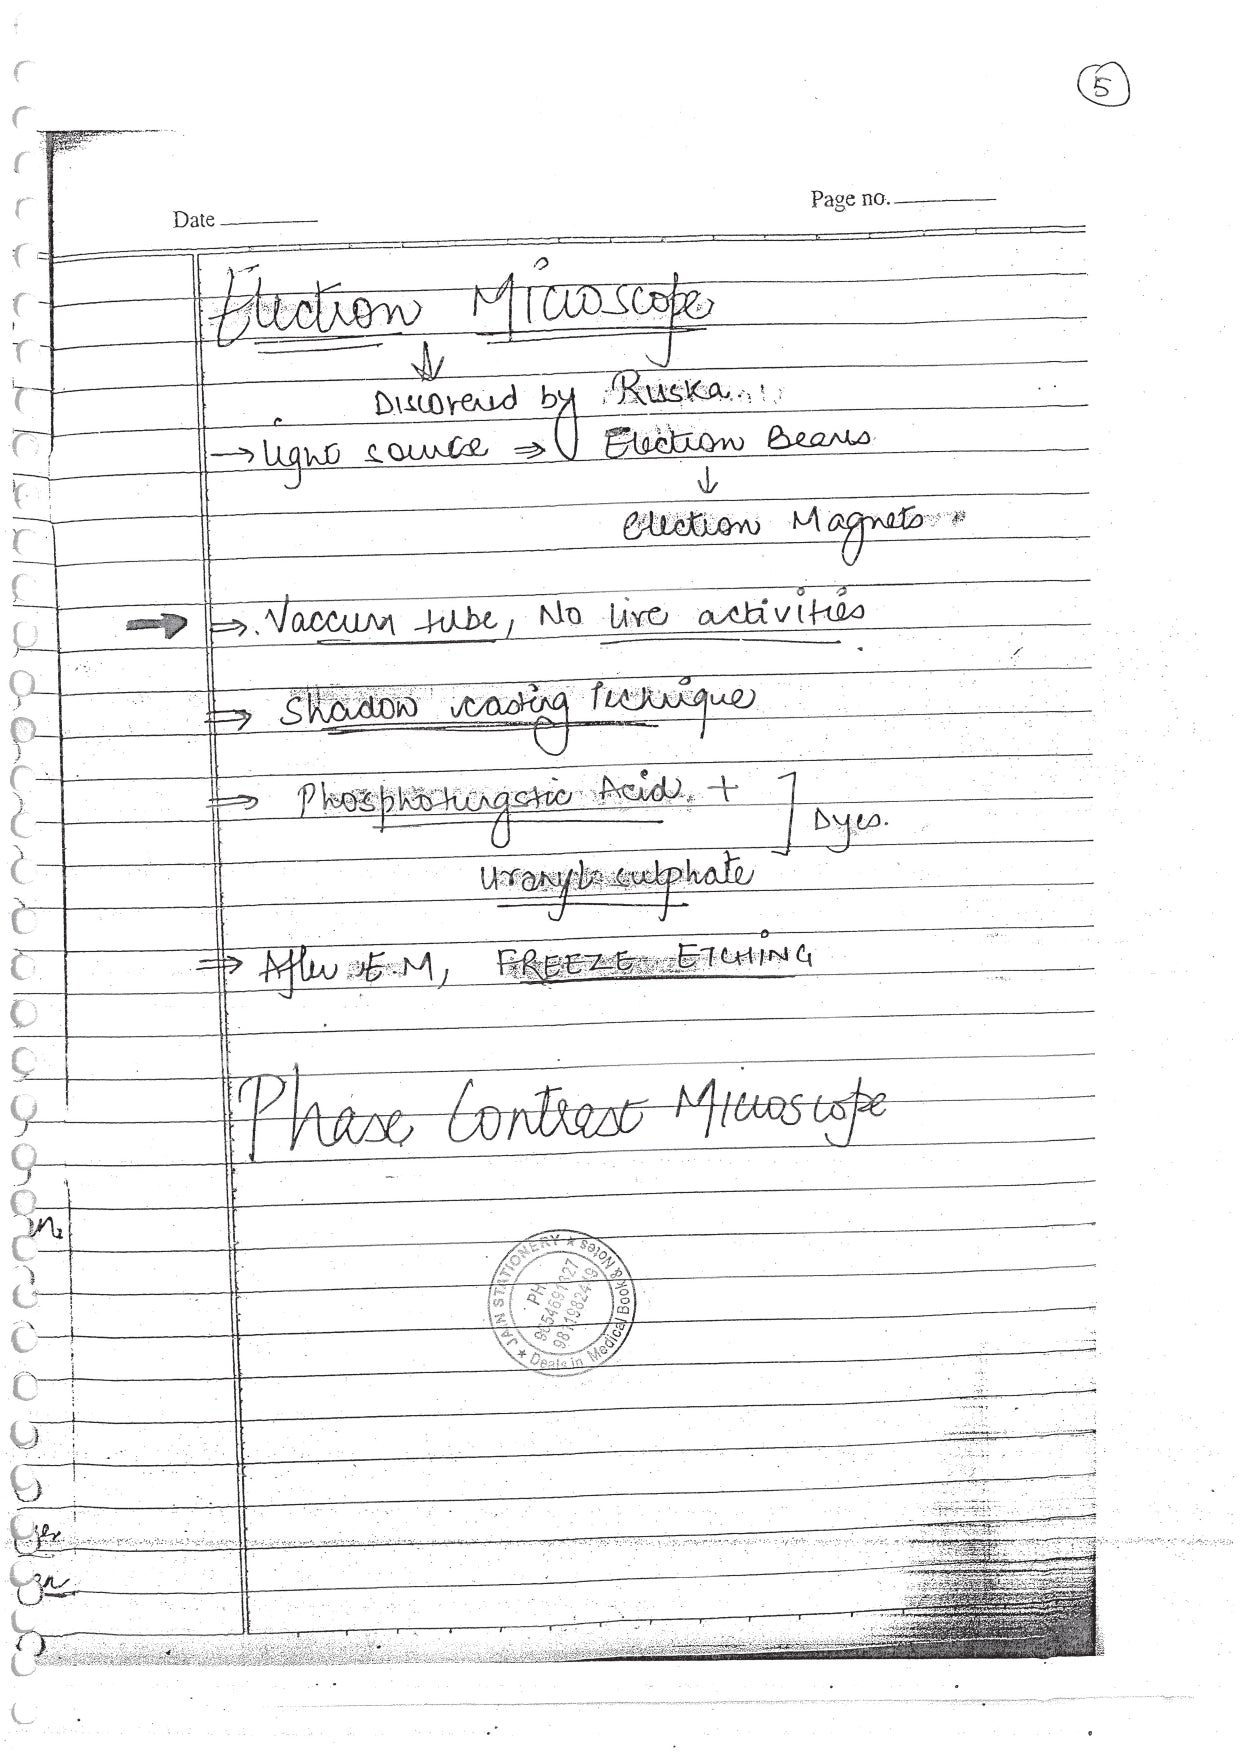 5
Page no.
Date
Electron Microscope
Discovered by Ruska
→ light source ⇒ Electron Beams
↓
Electron Magnets
⇒ Vaccum tube, No live activities
⇒ Shadow casting Technique
⇒ Phosphotungstic Acid +
Dyes.
Uranyl sulphate
⇒ After E.M, FREEZE ETCHING
Phase Contrast Microscope
JAIN STATIONERY ★ Deals in Medical Book & Notes ★
PH